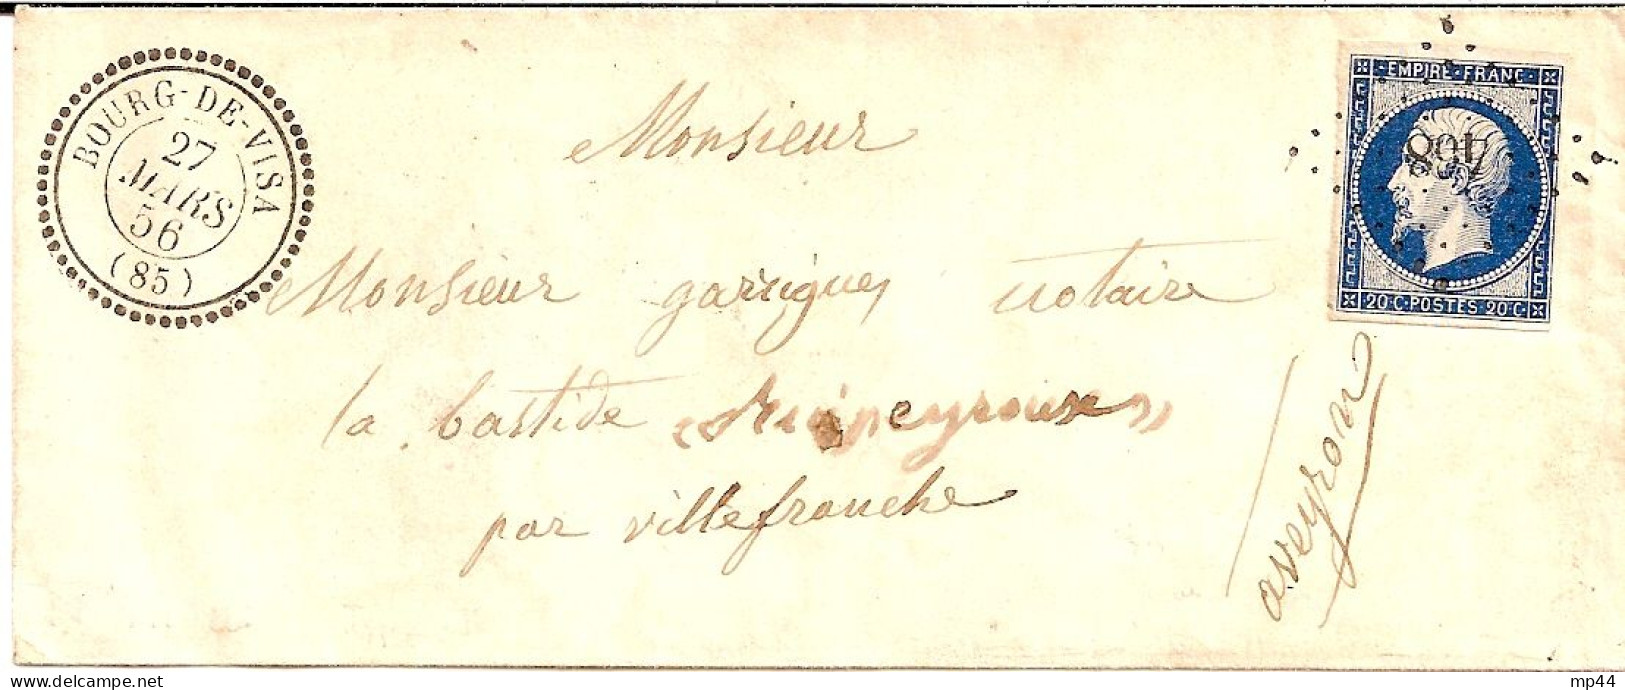 BOURG-DE-VISA
27
MARS
56
(85)
EMPIRE·FRANC·
408
20·C·POSTES 20·C·
Monsieur
Monsieur garrigues notaire
la bastide
par villefranche
aveyron
delcampe.net
mp44